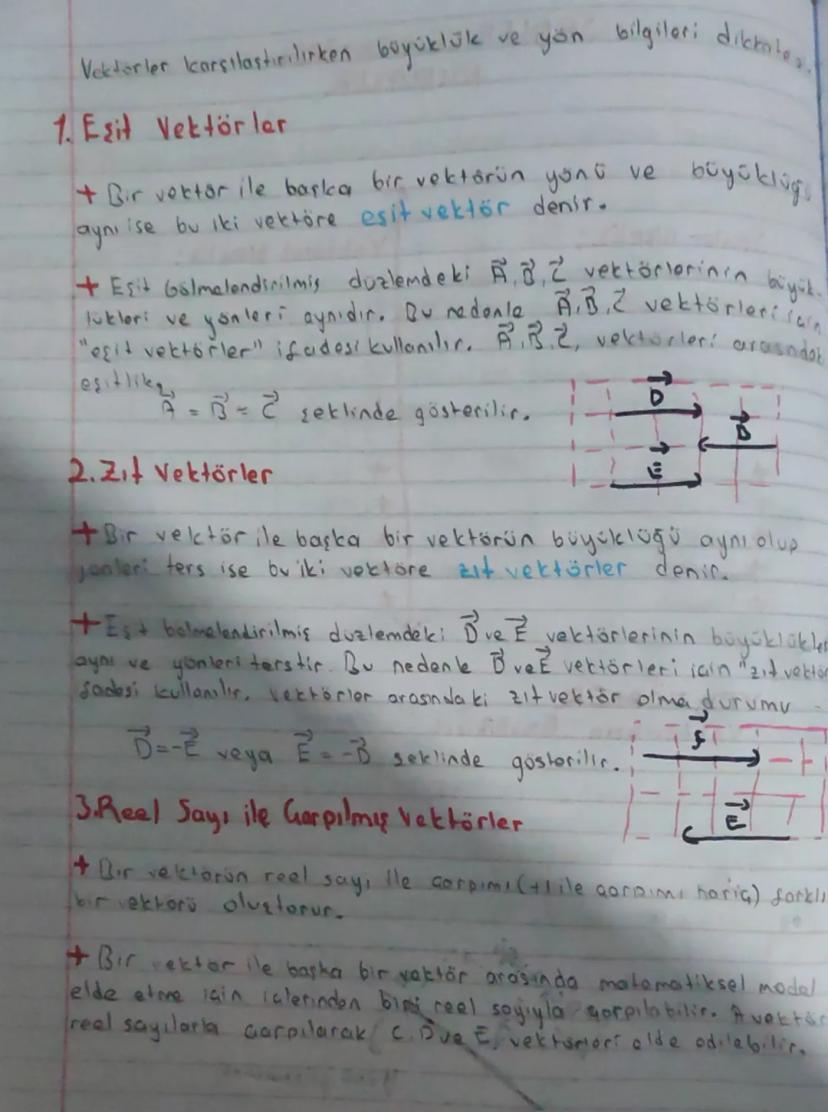 Vektörler karşılaştırılırken büyüklük ve yön bilgileri
1. Eşit Vektörler
+ Bir vektör ile başka bir vektörün yönü ve büyüklüğ
aynı ise bu iki vektöre eşit vektör denir.
+ Eşit bölmelendirilmiş düzlemdeki A, B, C vektörlerinin büyük-
lükleri ve yönleri aynıdır. Bu nedenle A, B, C vektörleri için
"eşit vektörler" ifadesi kullanılır. A, B, C, vektörleri arasındak
eşitlik,
A = B = C şeklinde gösterilir.
D
B
E
2. Zıt Vektörler
+ Bir vektör ile başka bir vektörün büyüklüğü aynı olup
yönleri ters ise bu iki vektöre zıt vektörler denir.
+ Eşit bölmelendirilmiş düzlemdeki D ve E vektörlerinin büyüklükle
aynı ve yönleri terstir. Bu nedenle D ve E vektörleri için "zıt vektör
fadesi kullanılır. Vektörler arasındaki zıt vektör olma durumu
D = -E veya E = -D şeklinde gösterilir.
f
E
3. Reel Sayı ile Çarpılmış Vektörler
+ Bir vektörün reel sayı ile çarpımı (+1 ile çarpımı hariç) farklı
bir vektörü oluşturur.
+ Bir vektör ile başka bir vektör arasında matematiksel model
elde etme için içlerinden birisi reel sayıyla çarpılabilir. A vektör
reel sayılarla çarpılarak C, D ve E, vektörleri elde edilebilir.